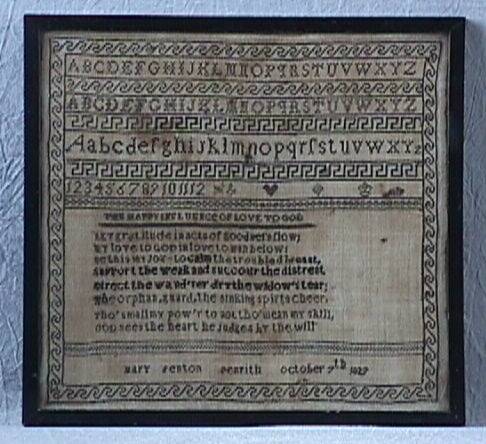 ABCDEFGHIJKLMNOPQRSTUVWXYZ
ABCDEFGHIJKLMNOPQRSTUVWXYZ
Aabcdefghijklmnopqrſstuvwxyz
1 2 3 4 5 6 7 8 9 10 11 12
THE HAPPY INFLUENCE OF LOVE TO GOD
LET gratitude in acts of goodness flow;
MY love to GOD in love to man below;
BE this my JOY to calm the troubled breast,
support the weak and succour the distrest
direct the wand'rer dry the widow's tear;
the orphan guard, the sinking spirits cheer,
Tho' small my pow'r to act tho' mean my skill,
GOD sees the heart he judges by the will
Mary Fenton Penrith October 7th 1827